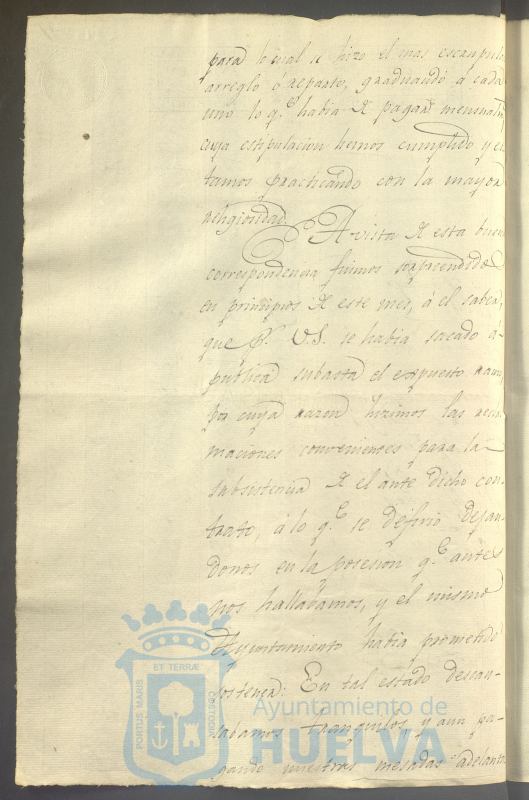 para lo cual se hizo el mas escrupulo
arreglo ó reparto, graduando á cada
uno lo q.e habia de pagar mensualm
cuya estipulacion hemos cumplido y es
tamos practicando con la mayor
religiosidad.
A vista de esta buen
correspondencia fuimos sorprendidos
en principios de este mes, á el saber,
que p.r V.S. se habia sacado á
publica subasta el expuesto ramo,
por cuya razon hizimos las recla
maciones convenientes para la
subsistencia de el ante dicho con
trato, á lo q.e se defirio dejan
donos en la posesion q.e antes
nos hallabamos, y el mismo
Ayuntamiento habia prometido
sostener: En tal estado descan-
sabamos tranquilos, y aun pa-
gando nuestras mesadas adelanta
ET TERRÆ
PORTUS MARIS
CUSTODIA
Ayuntamiento de
HUELVA